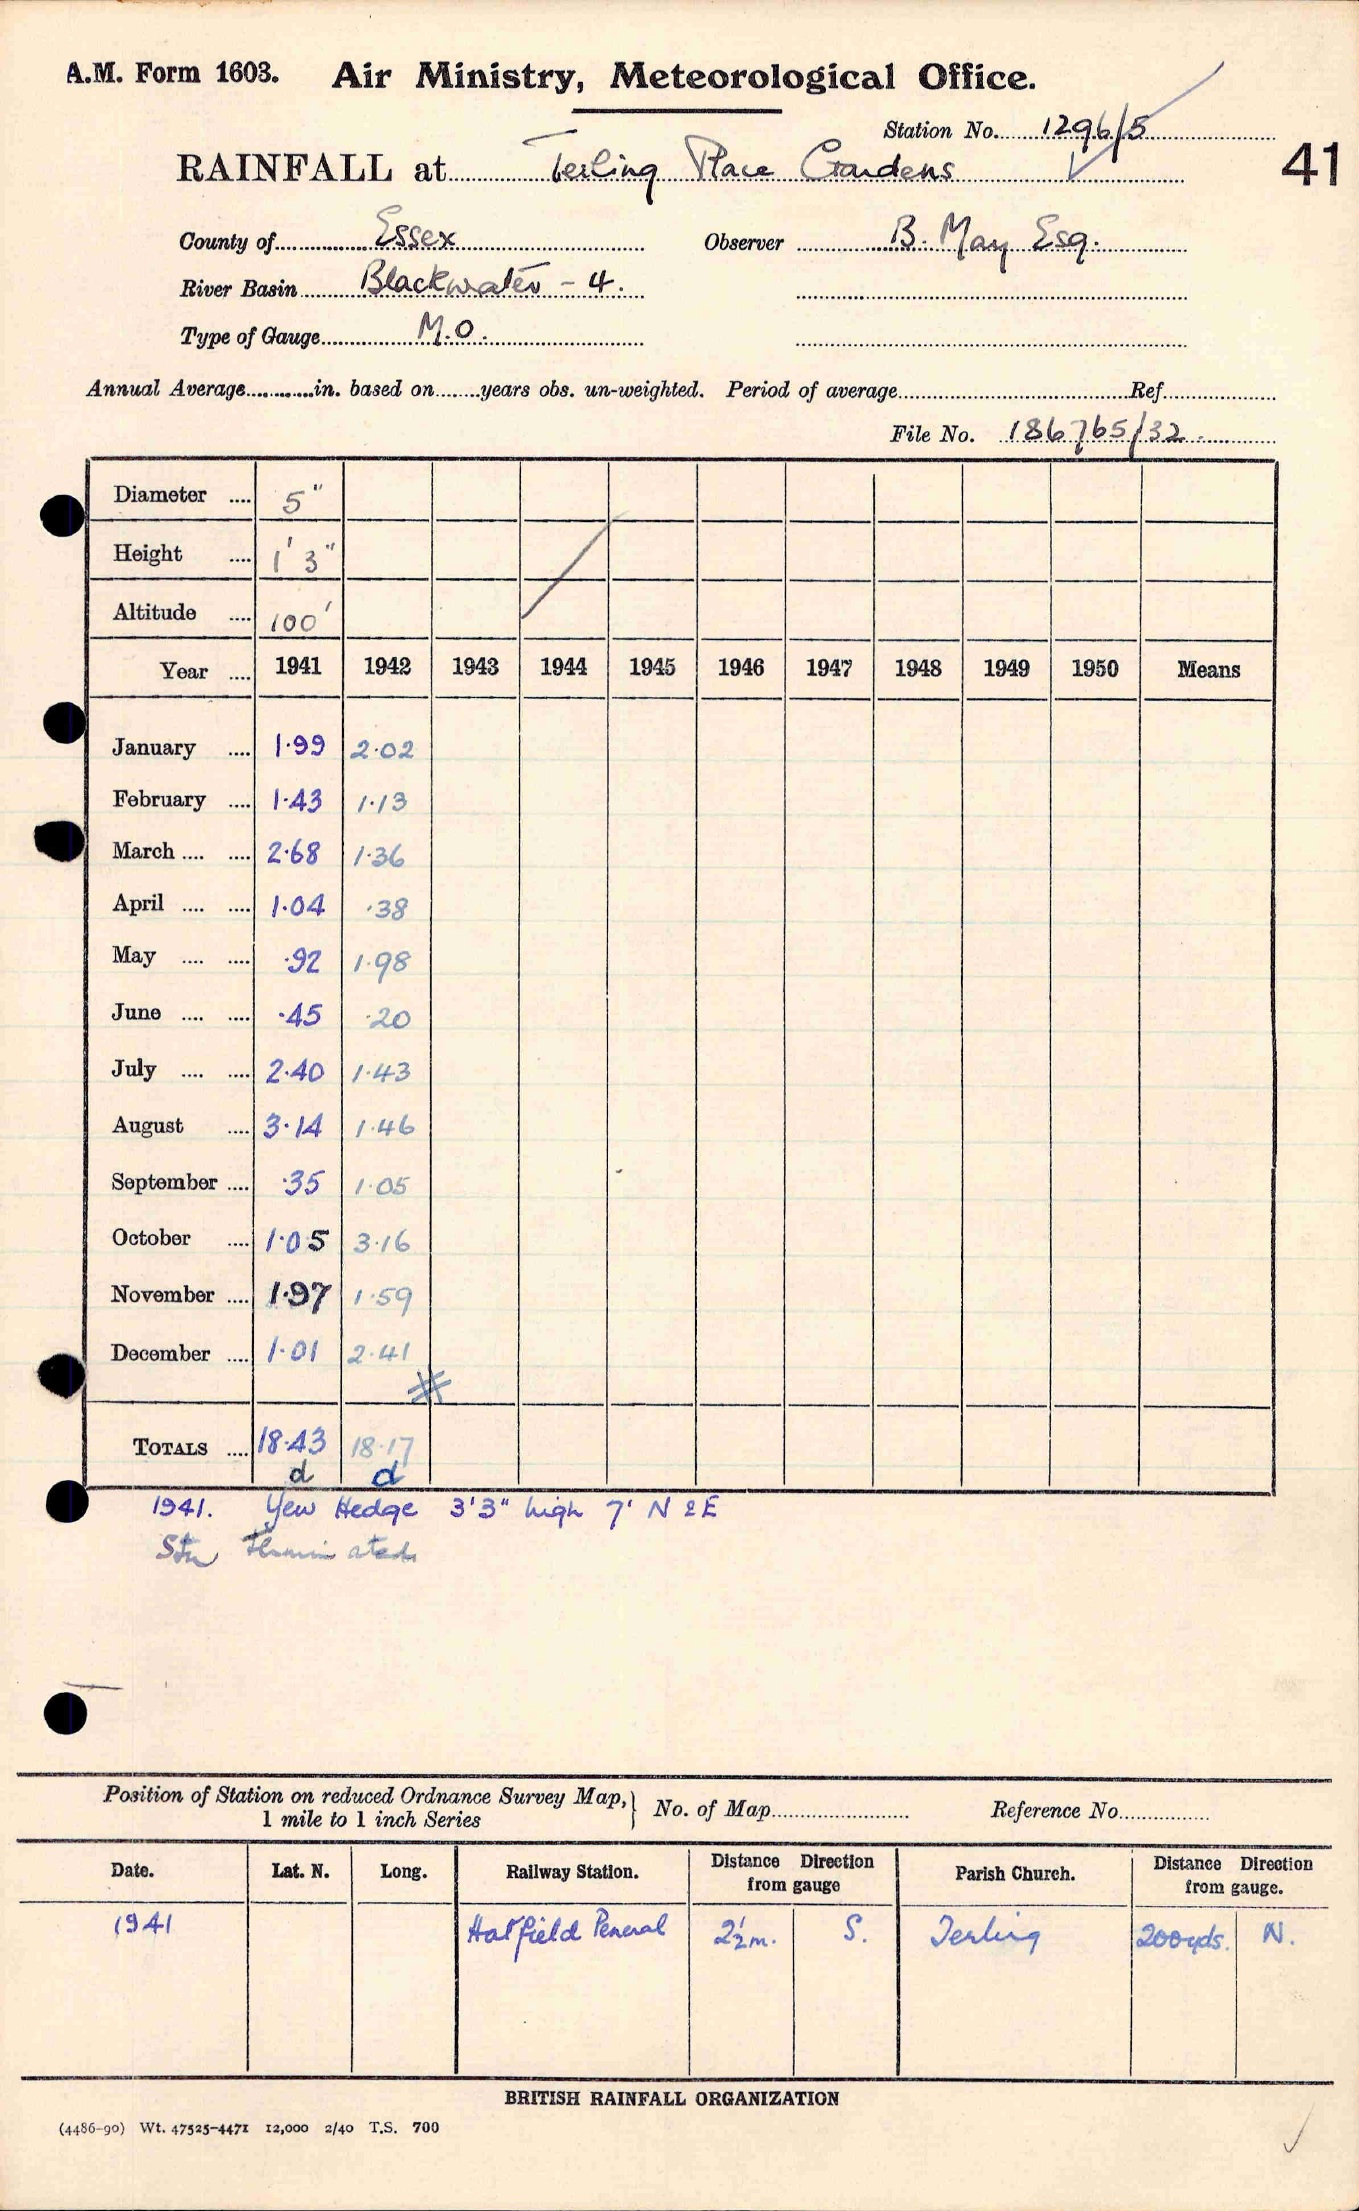 A.M. Form 1603. Air Ministry, Meteorological Office.
Station No. 1296/5
41
RAINFALL at Terling Place Gardens
County of Essex Observer B. May Esq.
River Basin Blackwater - 4.
Type of Gauge M.O.
Annual Average in. based on years obs. un-weighted. Period of average Ref.
File No. 186765/32.
Diameter 5"
Height 1' 3"
Altitude 100'
Year 1941 1942 1943 1944 1945 1946 1947 1948 1949 1950 Means
January 1.99 2.02
February 1.43 1.13
March 2.68 1.36
April 1.04 .38
May .92 1.98
June .45 .20
July 2.40 1.43
August 3.14 1.46
September .35 1.05
October 1.05 3.16
November 1.97 1.59
December 1.01 2.41
TOTALS 18.43 18.17
d d
1941. Yew Hedge 3'3" high 7' N & E
Position of Station on reduced Ordnance Survey Map, 1 mile to 1 inch Series } No. of Map Reference No.
Date. Lat. N. Long. Railway Station. Distance Direction from gauge Parish Church. Distance Direction from gauge.
1941 Hatfield Peveral 2½m. S. Terling 200yds. N.
BRITISH RAINFALL ORGANIZATION
(4486-90) Wt. 47525-4471 12,000 2/40 T.S. 700